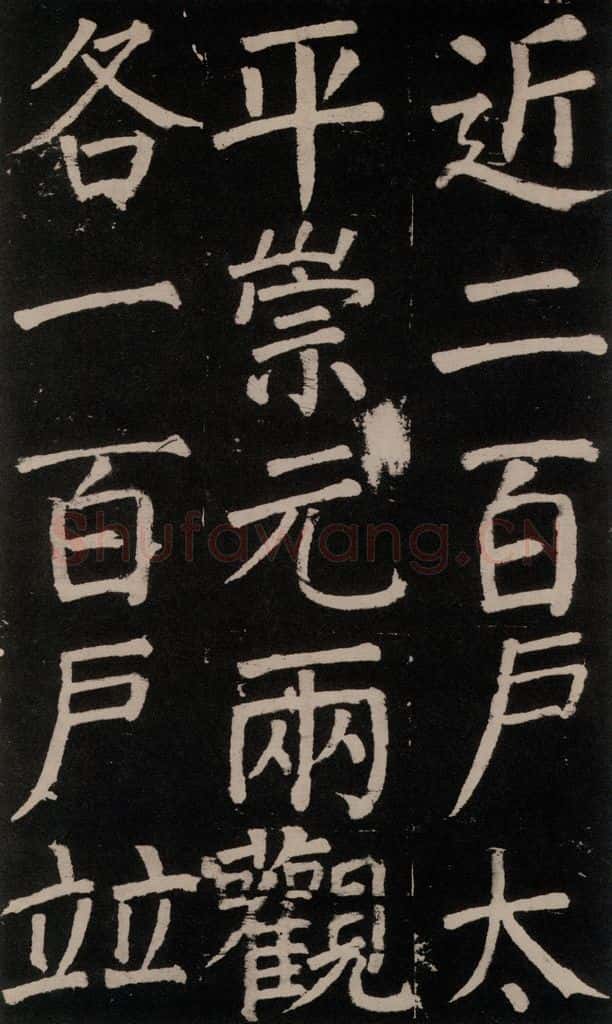 近二百戶太
平崇元兩觀
各一百戶竝
Shufawang.CN